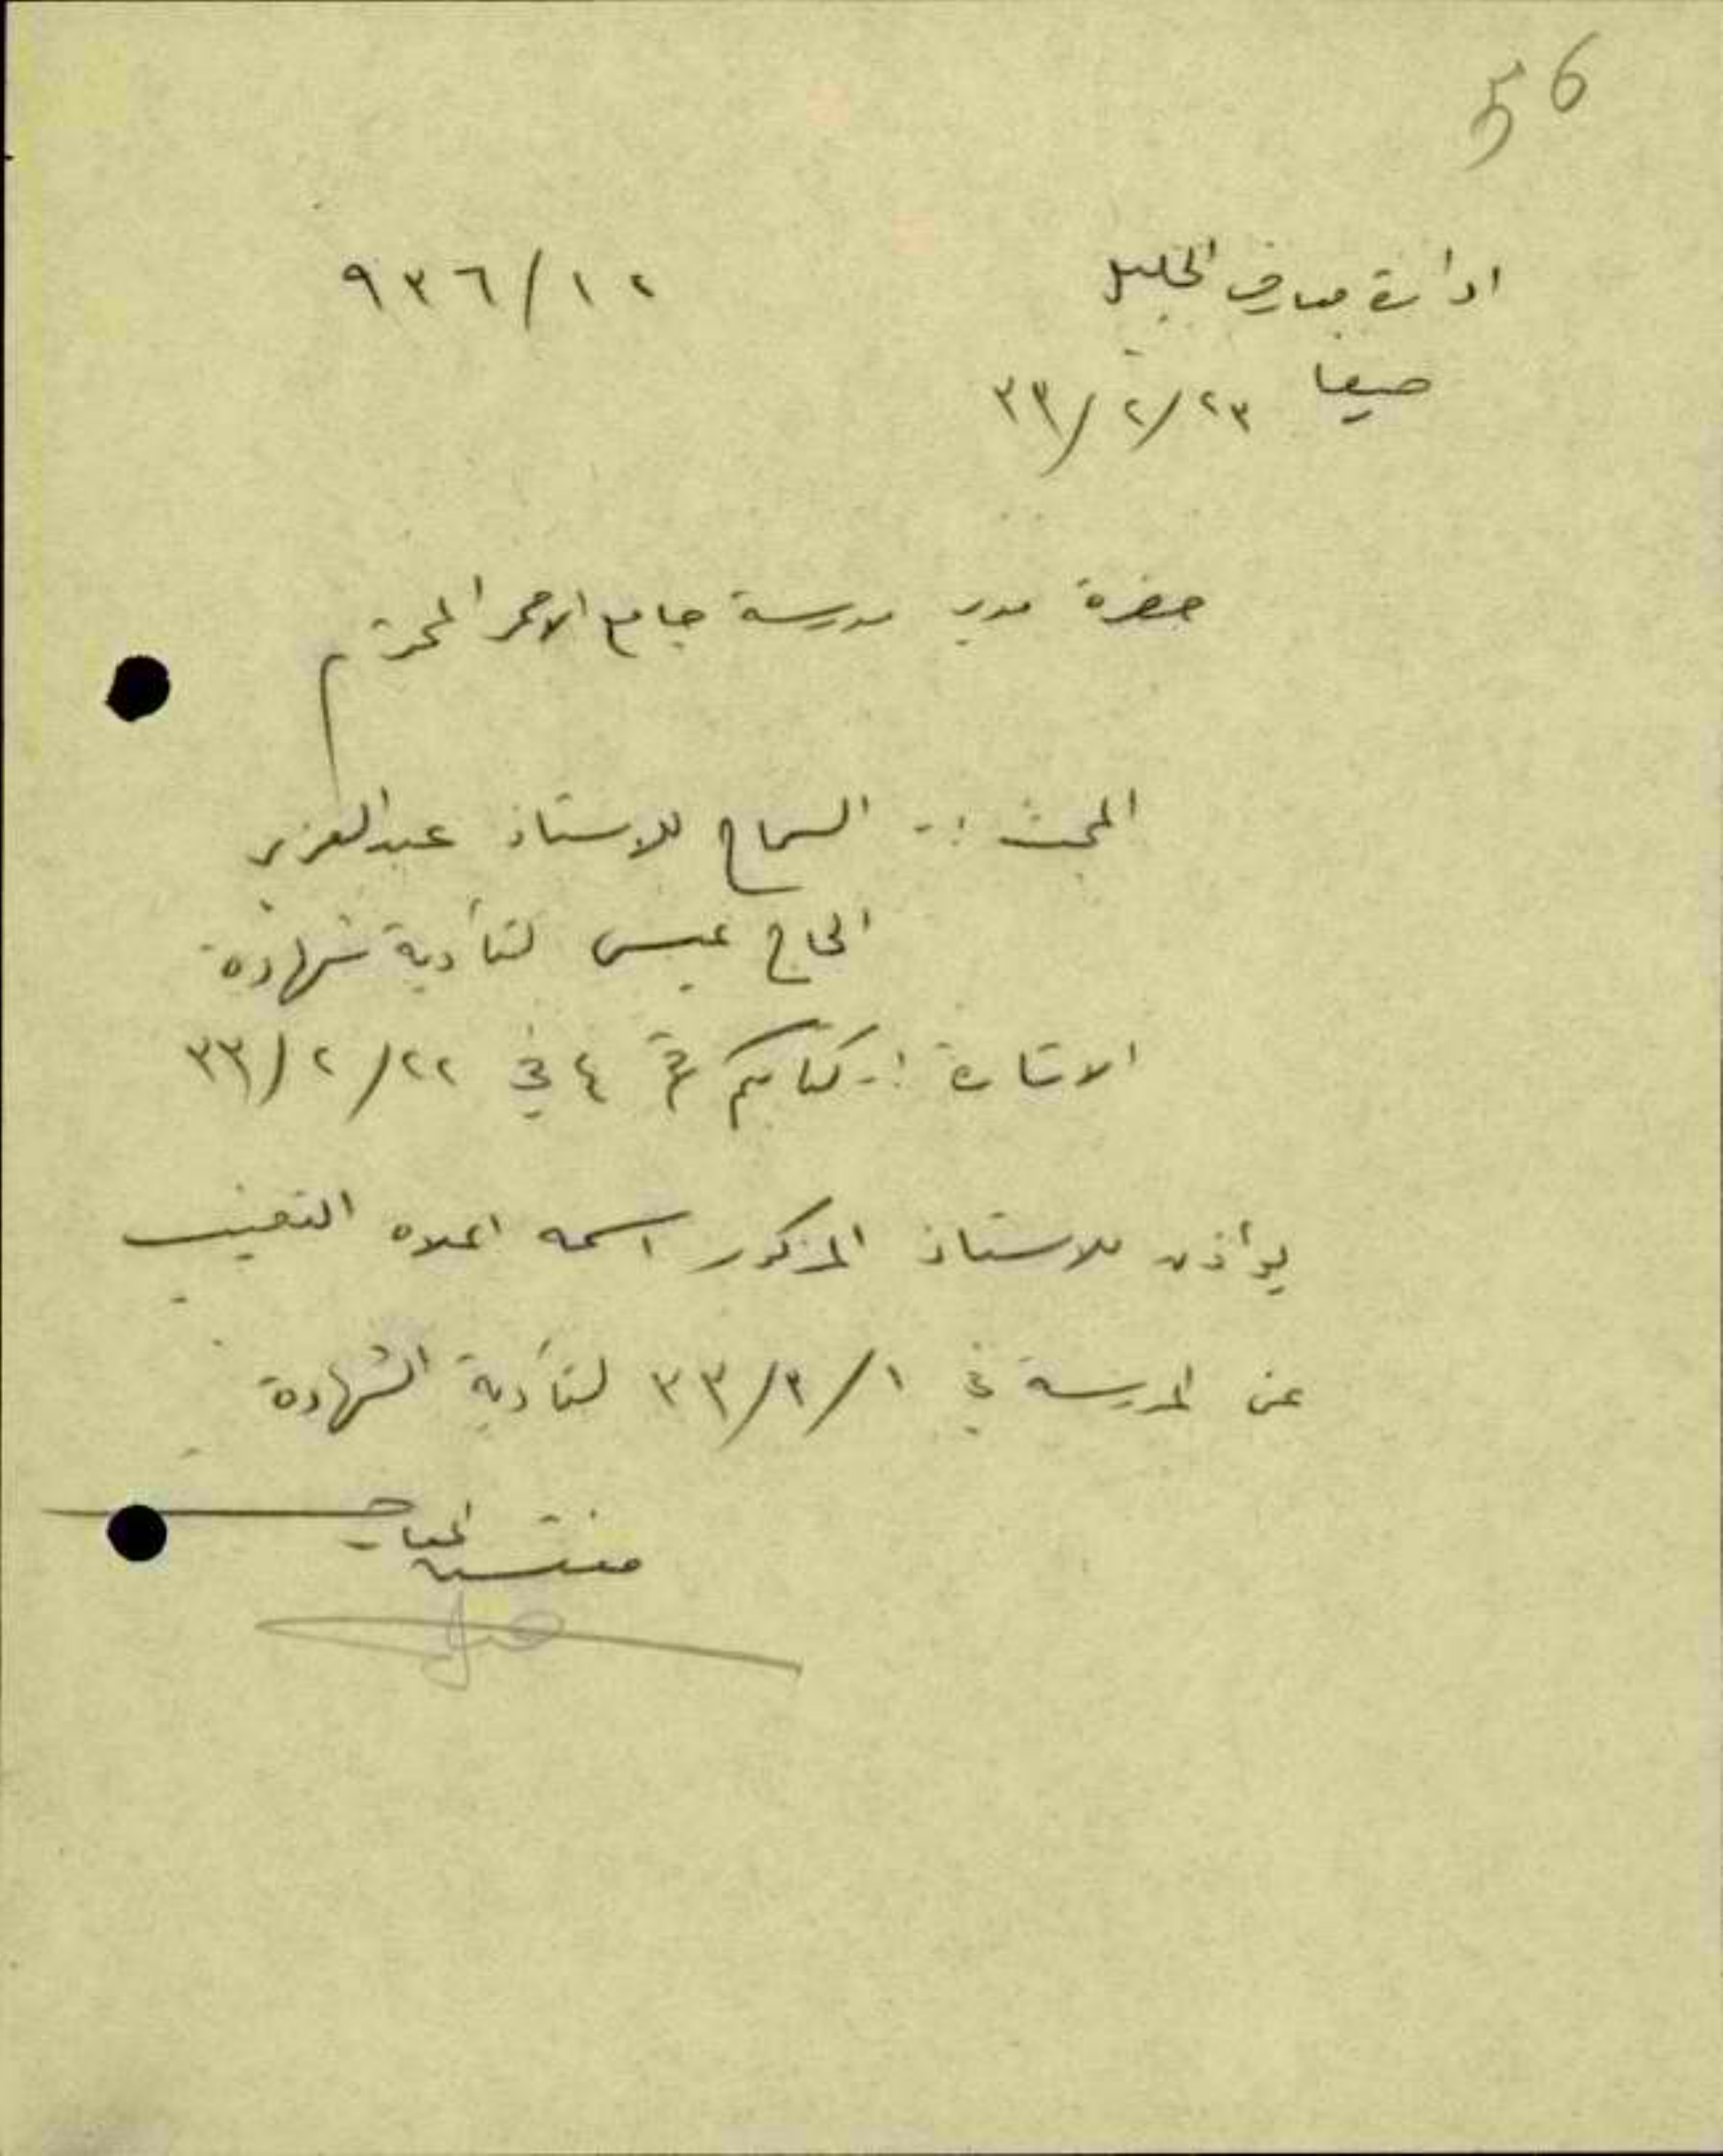 56
ادارة معارف الجليل
١٢/٩٣٦
حيفا ٢٣/٢/٣٣
حضرة مدير مدرسة جامع الاحمر المحترم
المبحث :- السماح للاستاذ عبدالعزيز
الحاج عيسى لتأدية شهادة
الاشارة :- كتابكم نمرة ٤ في ٢٢/٢/٣٣
يؤذن للاستاذ المذكور اسمه اعلاه التغيب
عن المدرسة في ١/٣/٣٣ لتأدية الشهادة
مفتش المعارف